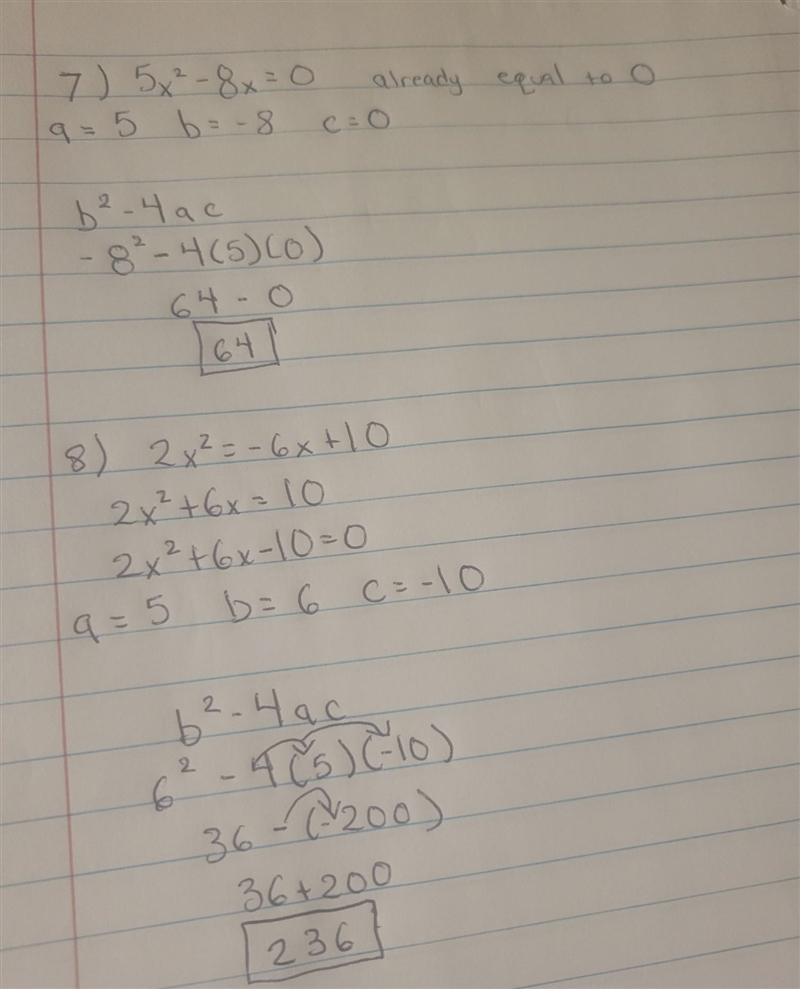 7) 5x² - 8x = 0 already equal to 0
a = 5 b = -8 c = 0
b² - 4ac
-8² - 4(5)(0)
64 - 0
64
8) 2x² = -6x + 10
2x² + 6x = 10
2x² + 6x - 10 = 0
a = 5 b = 6 c = -10
b² - 4ac
6² - 4(5)(-10)
36 - (-200)
36 + 200
236